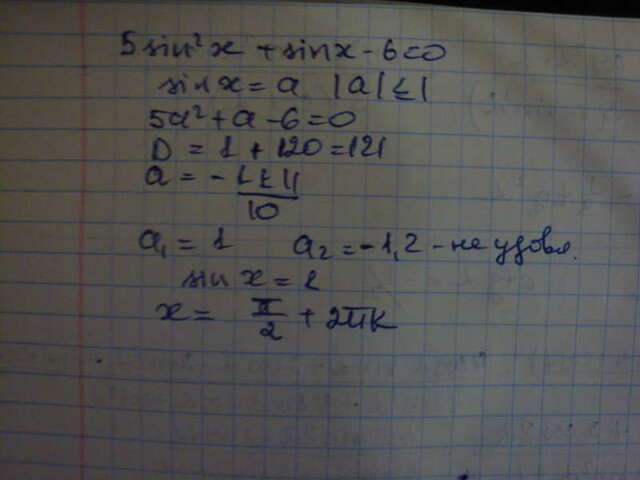 5sin²x + sinx - 6=0
sinx = a |a| ≤ 1
5a²+a-6=0
D = 1 + 120 = 121
a = -1±11/10
a₁ = 1 a₂ = -1,2 - не удовл.
sin x = 1
x = π/2 + 2πk